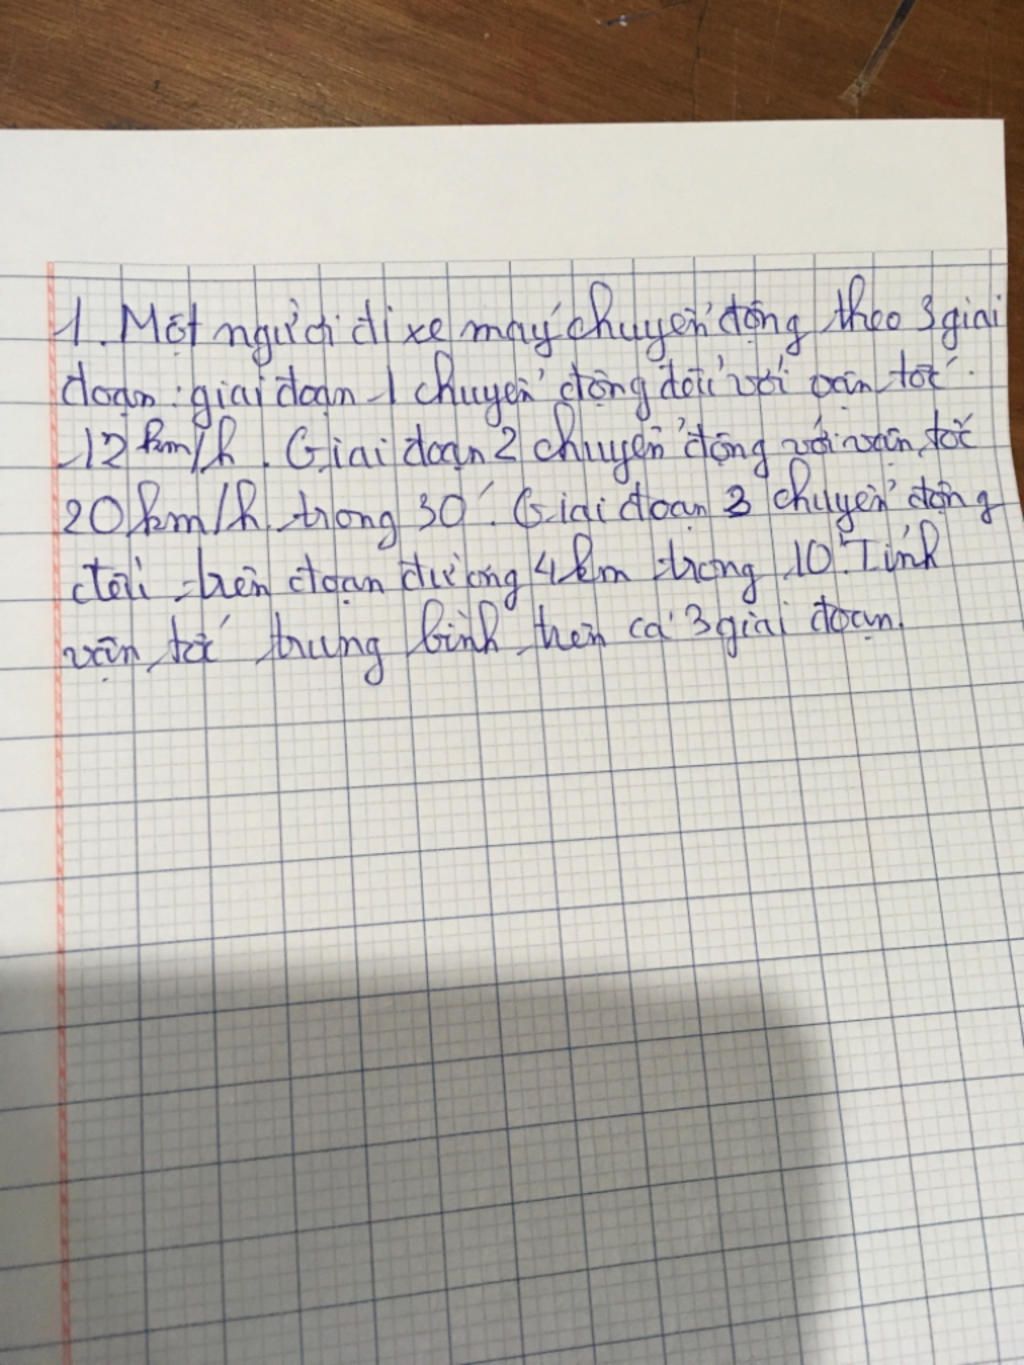 1. Một người đi xe máy chuyển động theo 3 giai
đoạn: giai đoạn 1 chuyển động đều với vận tốc
12 km/h. Giai đoạn 2 chuyển động với vận tốc
20 km/h trong 30'. Giai đoạn 3 chuyển động
đều trên đoạn đường 4km trong 10'. Tính
vận tốc trung bình trên cả 3 giai đoạn.